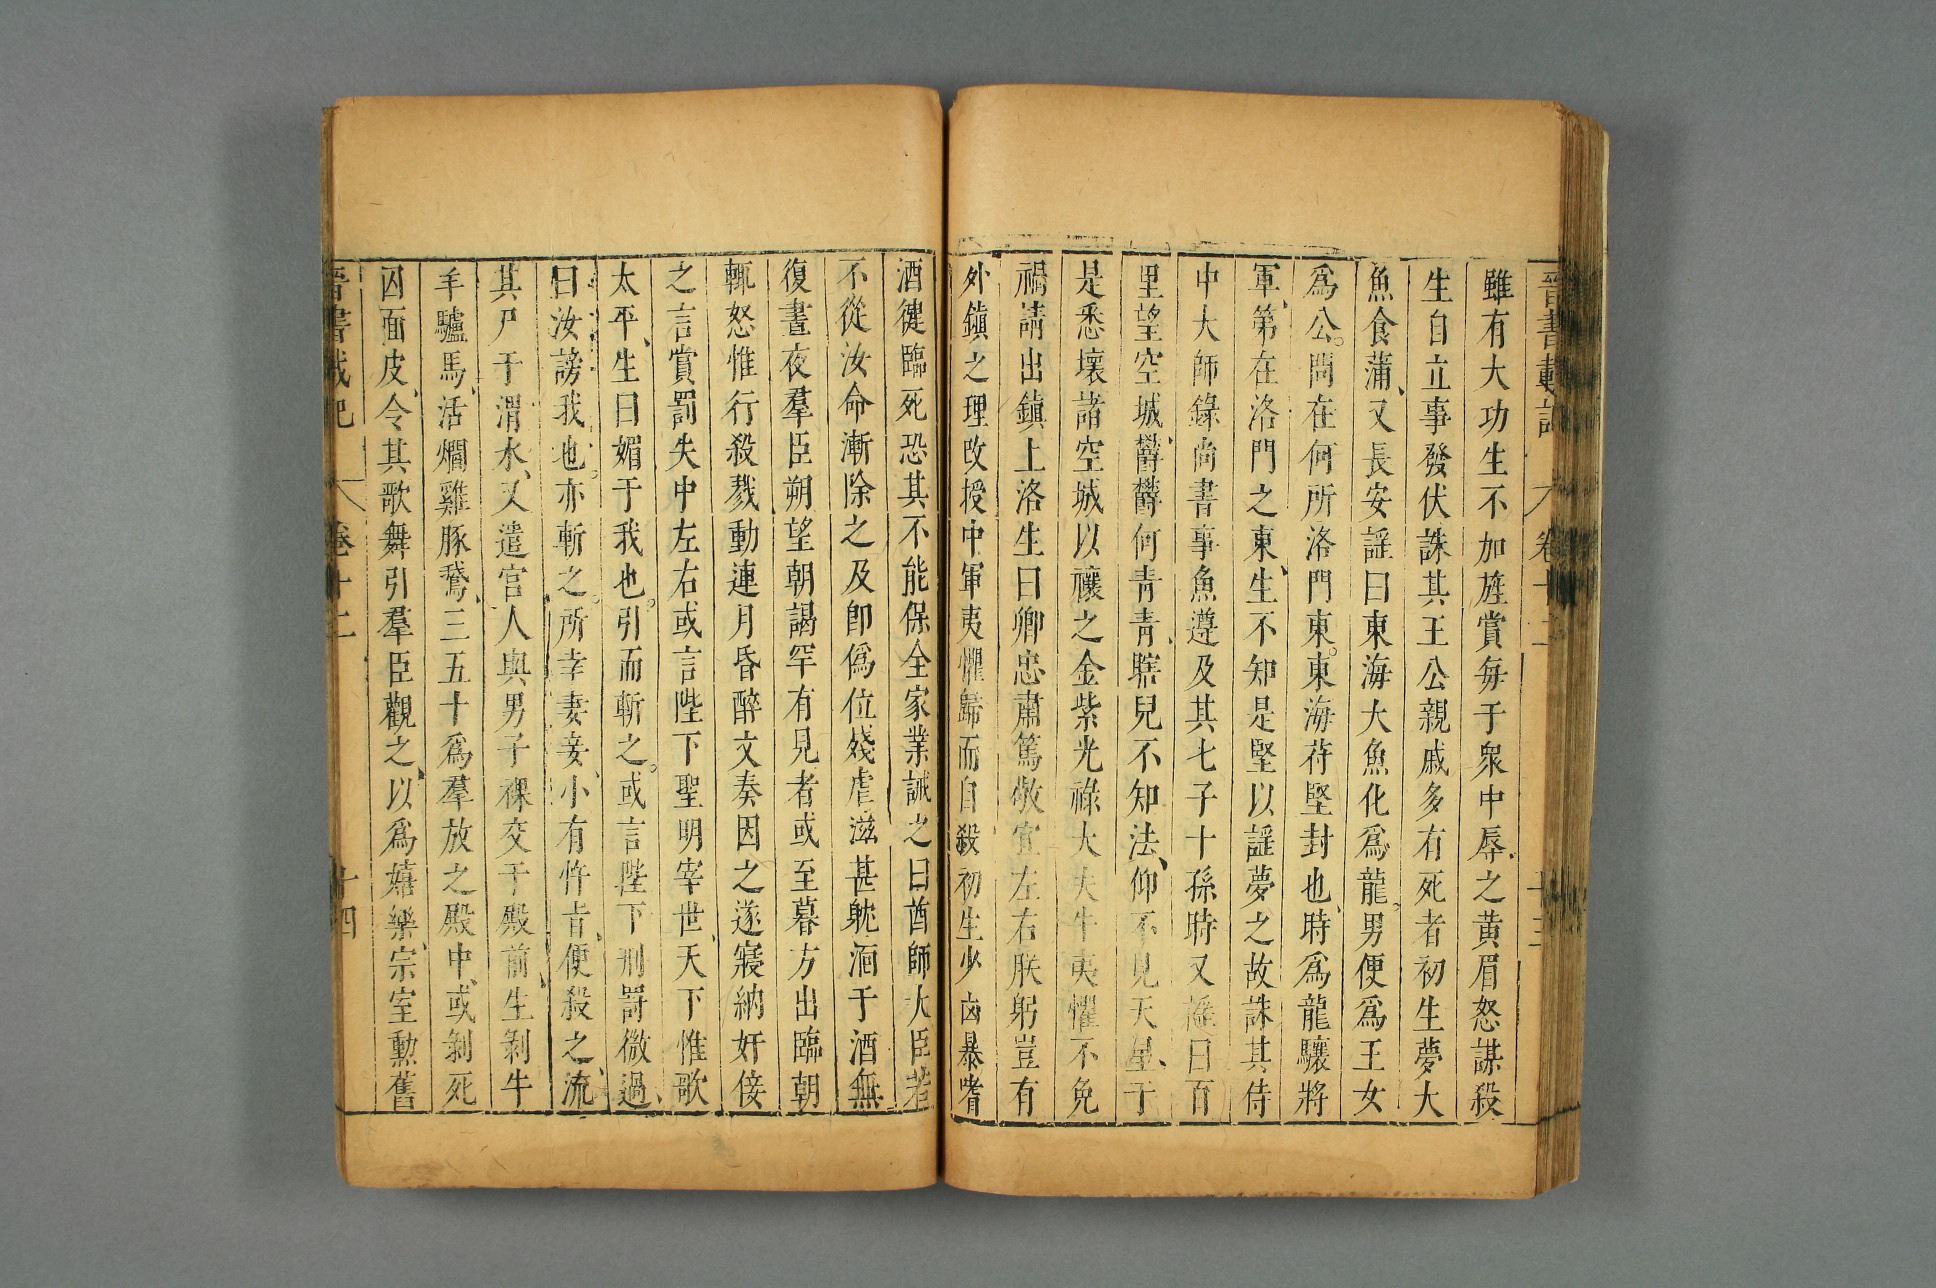 晉書載記 卷十二 十三
雖有大功生不加旌賞每于衆中辱之黃眉怒謀殺
生自立事發伏誅其王公親戚多有死者初生夢大
魚食蒲、又長安謡曰東海大魚化爲龍。男便爲王女
爲公。問在何所洛門東。東海苻堅封也、時爲龍驤將
軍、第在洛門之東、生不知是堅以謡夢之故誅其侍
中大師錄尚書事魚遵及其七子十孫時又謡曰百
里望空城、鬱鬱何青青、瞎兒不知法、仰不見天星、于
是悉壞諸空城以禳之金紫光祿大夫牛夷懼不免
禍請出鎮上洛生曰卿忠肅篤敬宜左右朕躬豈有
外鎮之理改授中軍夷懼歸而自殺初生少凶暴嗜
酒徤臨死恐其不能保全家業誡之曰酋師大臣若
不從汝命漸除之及卽僞位殘虐滋甚躭湎于酒無
復晝夜羣臣朔望朝謁罕有見者或至暮方出臨朝
輒怒惟行殺戮、動連月昏醉文奏因之遂寢納奸佞
之言賞罰失中左右或言陛下聖明宰世、天下惟歌
太平、生曰媚于我也。引而斬之。或言陛下刑罰微過、
曰汝謗我也。亦斬之。所幸妻妾、小有忤㫖、便殺之、流
其尸于渭水、又遣宮人與男子裸交于殿前、生剝牛
羊驢馬、活爓雞豚鵞、三五十爲羣放之殿中、或剝死
囚面皮、令其歌舞引羣臣觀之、以爲嬉樂、宗室勲舊
晉書載記 卷十二 十四